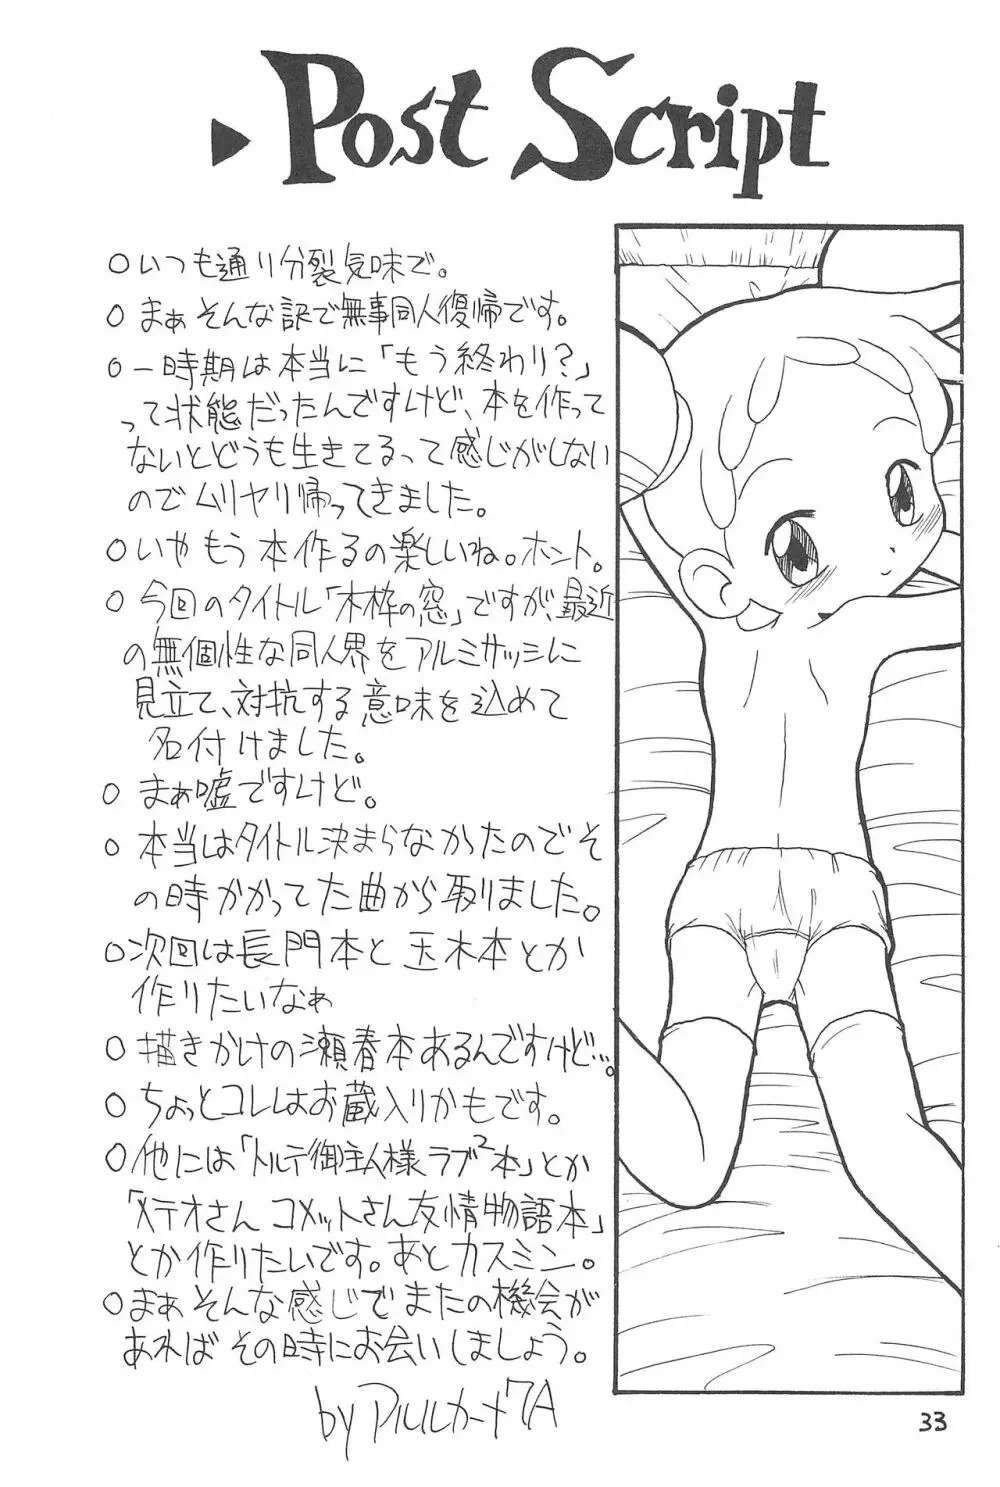 ▶Post Script
○いつも通り分裂気味で。
○まぁそんな訳で無事同人復帰です。
○一時期は本当に「もう終わり?」
って状態だったんですけど、本を作って
ないとどうも生きてるって感じがしない
のでムリヤリ帰ってきました。
○いやもう本作るの楽しいね。ホント。
○今回のタイトル「木枠の窓」ですが、最近
の無個性な同人界をアルミサッシに
見立て、対抗する意味を込めて
名付けました。
○まぁ嘘ですけど。
○本当はタイトル決まらなかったのでそ
の時かかってた曲から取りました。
○次回は長門本と玉木本とか
作りたいなぁ
○描きかけの瀬春本あるんですけど…。
○ちょっとコレはお蔵入りかもです。
○他には「トルテ御主人様ラブ²本」とか
「メテオさんコメットさん友情物語本」
とか作りたいです。あとカスミン。
○まぁそんな感じでまたの機会が
あればその時にお会いしましょう。
by アルルカート7A
33